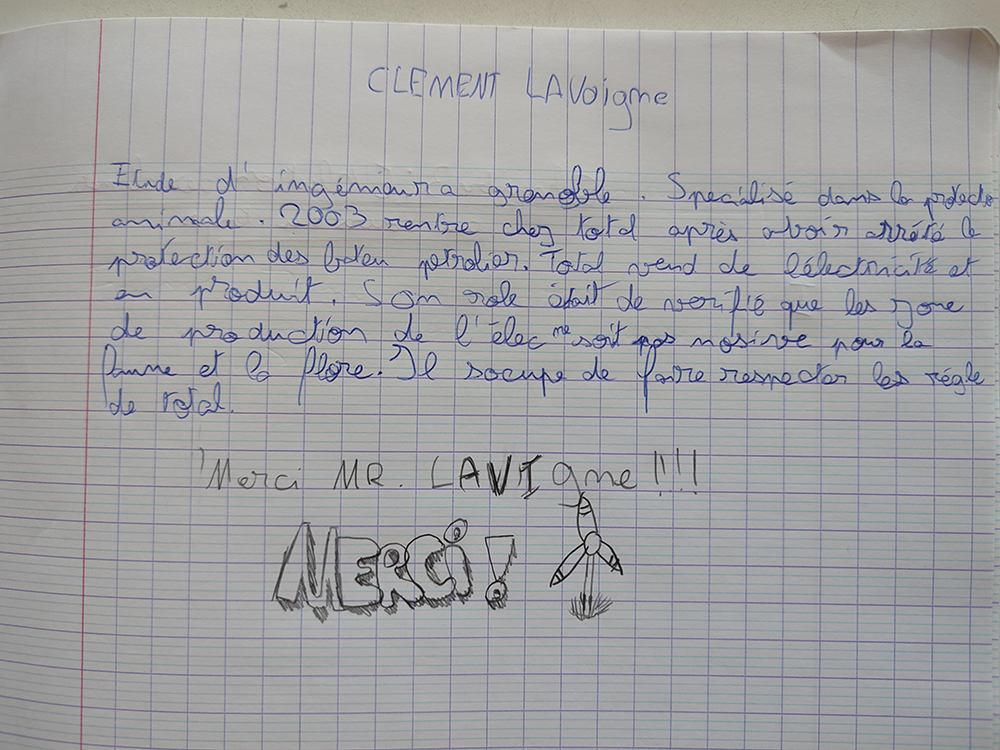 CLEMENT LAVoigne
Etude d'ingénieur a grenoble. Specialisé dans la protectio
animale. 2003 rentre chez total après avoir arrété la
protection des bateu petrolier. Total vend de l'électricité et
en produit. Son role était de verifié que les zone
de production de l'élec ne soit pas nosive pour la
faune et la flore. Il socupe de faire respecter les régle
de total.
Merci MR. LAVIgne!!!
MERCi!